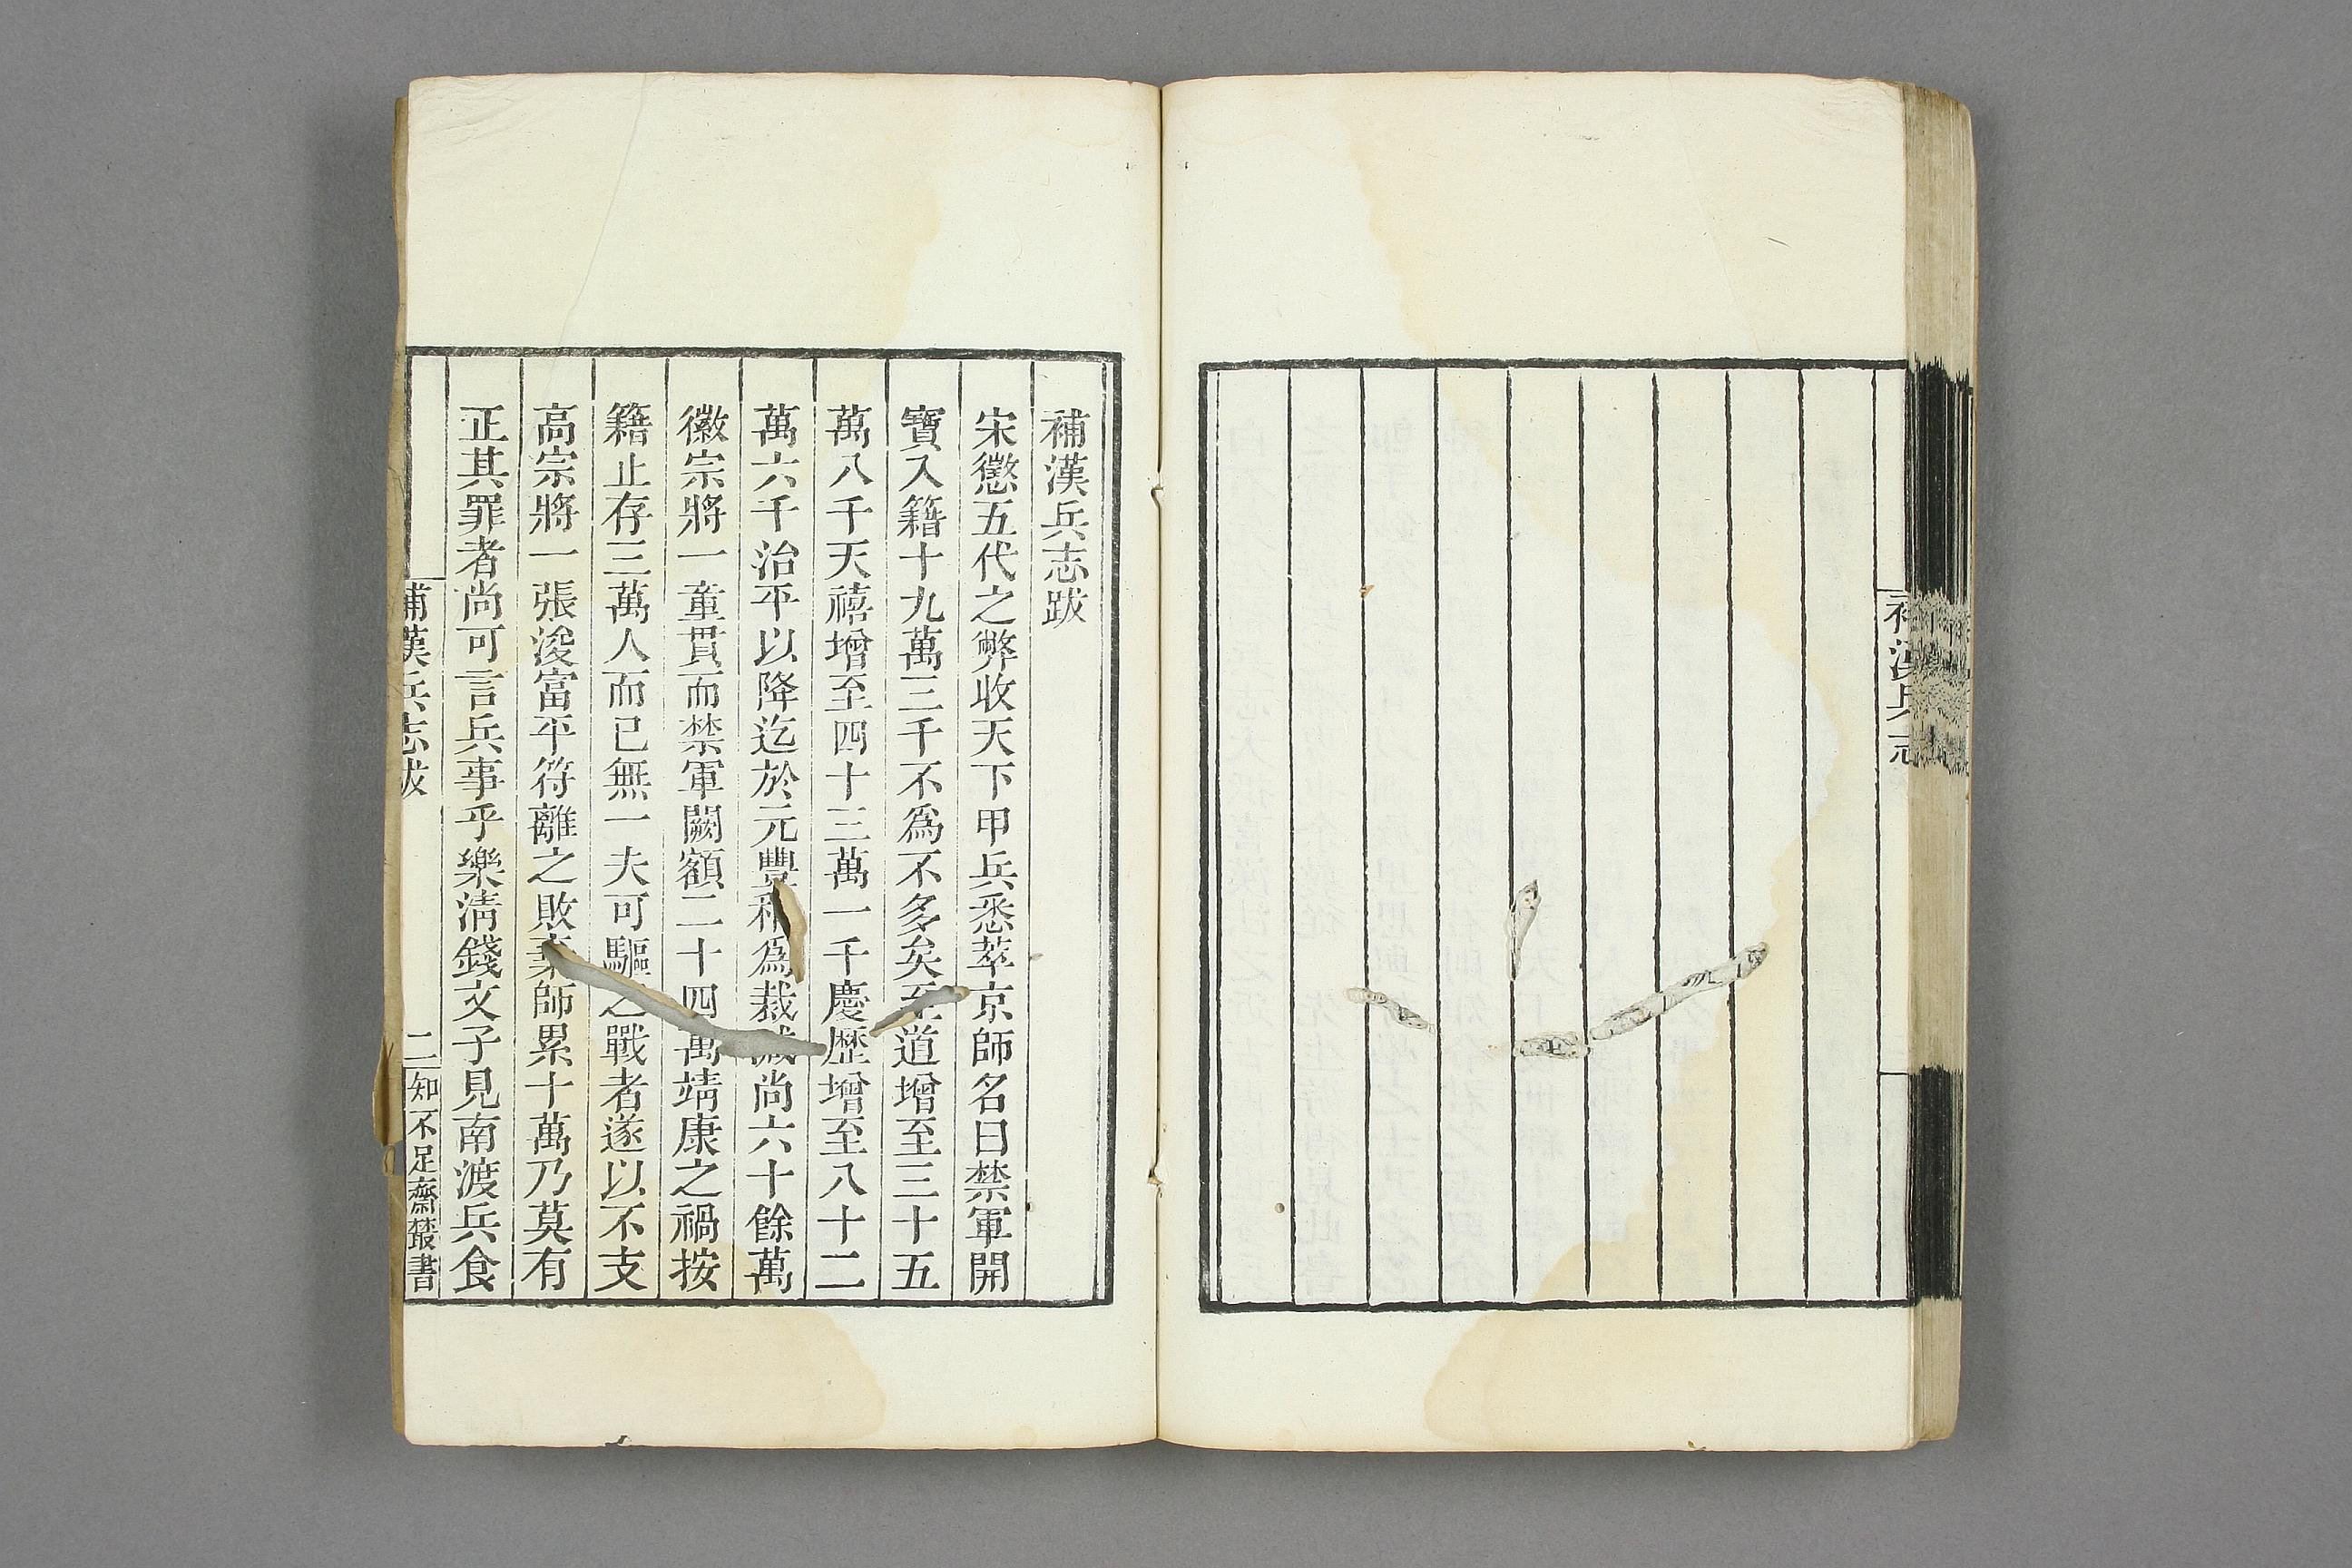 補漢兵志
補漢兵志跋
宋懲五代之弊收天下甲兵悉萃京師名曰禁軍開
寶入籍十九萬三千不爲不多矣至道增至三十五
萬八千天禧增至四十三萬一千慶歷增至八十二
萬六千治平以降迄於元豐稍爲裁減尚六十餘萬
徽宗將一童貫而禁軍闕額二十四萬靖康之禍按
籍止存三萬人而已無一夫可驅之戰者遂以不支
高宗將一張浚富平符離之敗棄師累十萬乃莫有
正其罪者尚可言兵事乎樂清錢文子見南渡兵食
補漢兵志跋
二
知不足齋叢書